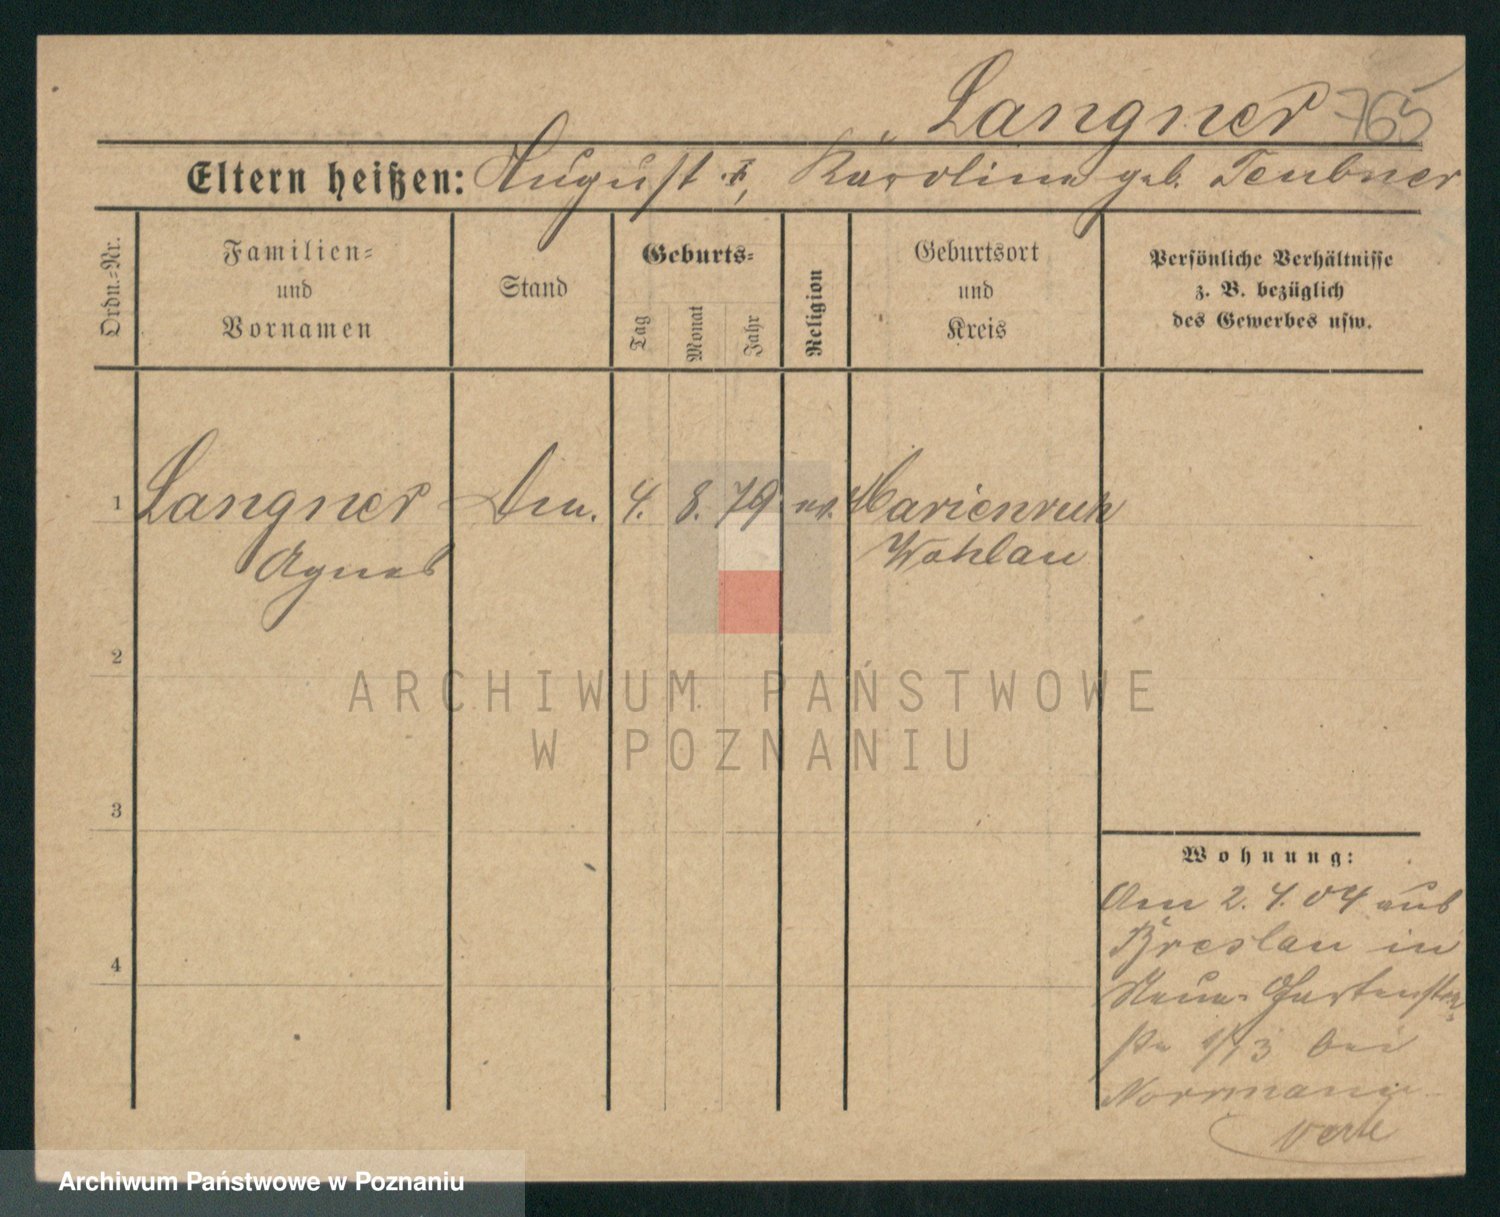 Langner 765
Eltern heißen: August u. Karoline geb. Teubner
Ordn.-Nr.
Familien-
und
Vornamen
Stand
Geburts-
Tag
Monat
Jahr
Religion
Geburtsort
und
Kreis
Persönliche Verhältnisse
z. B. bezüglich
des Gewerbes usw.
1 Langner 4. 8. 79 ev. Marienruh
Agnes Wohlau
2
3
4
ARCHIWUM PAŃSTWOWE
W POZNANIU
Wohnung:
Am 2.4.04 aus
Breslau in
Neue Gartenstra-
ße bei
Normann
Archiwum Państwowe w Poznaniu